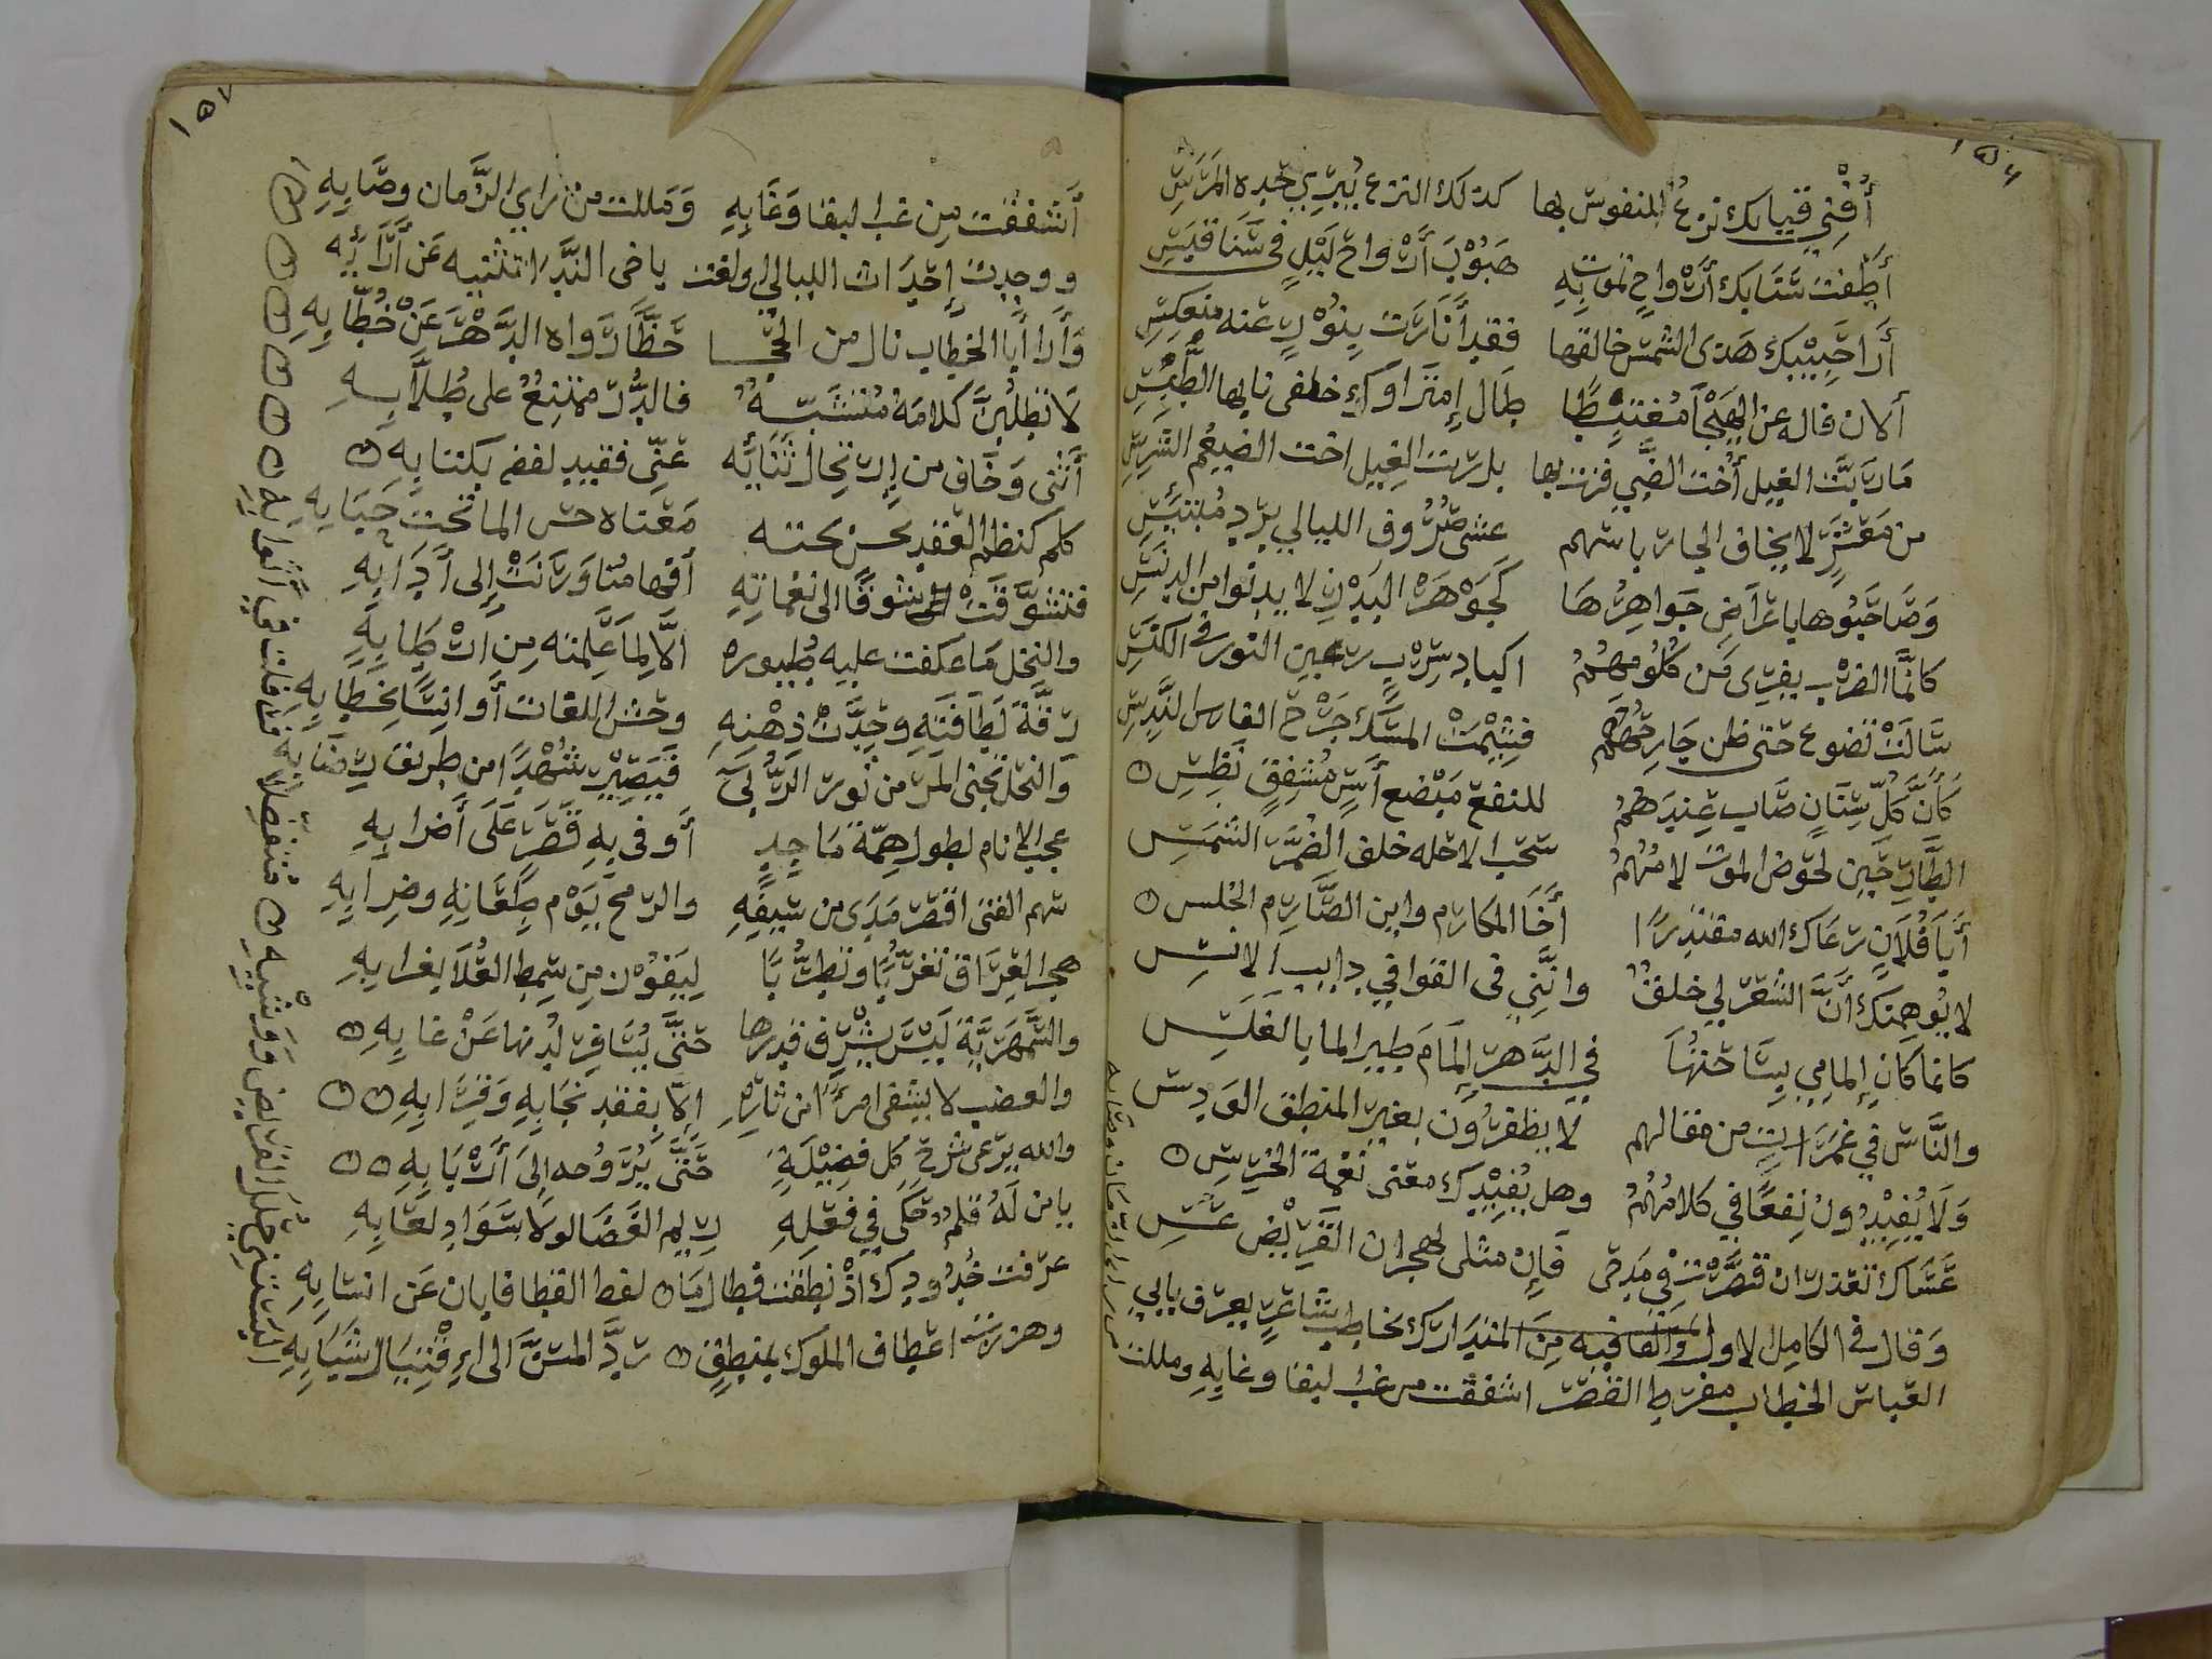 ١٥٦
أفني قيبابك نزع المنفوس بها كذلك النزع يبري جيده المرس
أطفت شبابك أرواح تموت به هبوب أرواح ليل في سنا قبس
أرا حبيبك هذى الشمس خالقها فقد أنارت بنور عنه منعكس
ألان قاله عن الهجا مغتبطا طال
ما ربت الغيل أخت الضبي فزت بها بل ربت الغيل اخت الضيغم الشرس
من معشر لا يخاف الجار باسهم عشى صروف الليالي
وصاحبوها باعراض جواهرها كجوهرة البدر لا يدنوا من الدنس
كانما الضرب يفرى من كلومهم اكباد سرب رعين النور في الكنس
سالت تضوع حتى ظن جارحهم فتيمت المسك جرح الفارس الندس
كأن كل سنان صاب عندهم للنفع مبضع أس مشفق نطس
الطارحين لحوض الموت لامتهم سحب الاحله خلف الضمر الشمس
أيا فلان رعاك الله مقتدرا أخا المكارم وابن الصارم الخلس
لا يوهمنك أن الشعر لي خلق وانني في القوافي دايب الانس
كانما كان إلمامي بساحتها في الدهر إلمام طير الما بالغلس
والناس في غمرات من مقالهم لا يظفرون بغير المنطق الودس
ولا يفيدون نفعا في كلامهم وهل يفيدك معنى نغمة الخرس
عساك تعذر ان قصرت في مدحى فإن مثلى لهجران القريض عس
وقال في الكامل الاول والقافيه من المتدارك يخاطب شاعر يعرف بابي
القباس الخطاب مفرط القصر اشفقت من عب البقا وعابه ومللت
١٥٧
أشفقت من عب البقا وعابه ومللت من راي الزمان وصابه
ووجدت إحداث الليالي اولعت باخى الندا تثنيه عن أرائه
وأرا أبا الخطاب نال من الحجا حظا رواه الدهر عن خطابه
لا تطلبن كلامه متشبه فالدر ممتنع على طلابه
أثنى وخاف من ارتجال ثنائه عني فقيد لفظه بكتابه
كلم كنظم العقد يحسن تحته معناه حسن الما تحت حبابه
فتشوقت شوقا الى نغماته أفهامنا ورنت إلى أدابه
والنخل ما عكفت عليه طيوره الا لما علمته من ارطابه
رقة لطافته وحدت ذهنه وحش اللغات أوانسا بخطابه
والنحل تجنى المر من نور الربى فيصير شهدا من طريق رضابه
عجب الانام لطول همة ماجد أوفي به قصر على أضرابه
سهم الفتى اقصر مدى من سيفه والرمح يوم طعانه وضرابه
هجر العراق تغربا وتطربا ليفوز من سمط العلا بغرابه
والسمهرية ليس يشرف قدرها حتى يسافر لدنها عن غابه
والعضب لا يشفى امرءا من ثاره الا بفقد نجابه وقرابه
والله يرعى سرح كل فضيلة حتى يروحه إلى أربابه
يا من له قلم حكى في فعله ريم الغضا لولا سواد لعابه
عرفت خدودك اذ نطقت فطالما لفظ القطا فابان عن انسابه
وهززت اعطاف الملوك بمنطق رد المسن الى اقتبال شبابه
البستني حلل القريض ووشيه متفضلا فرفلت في أثوابه